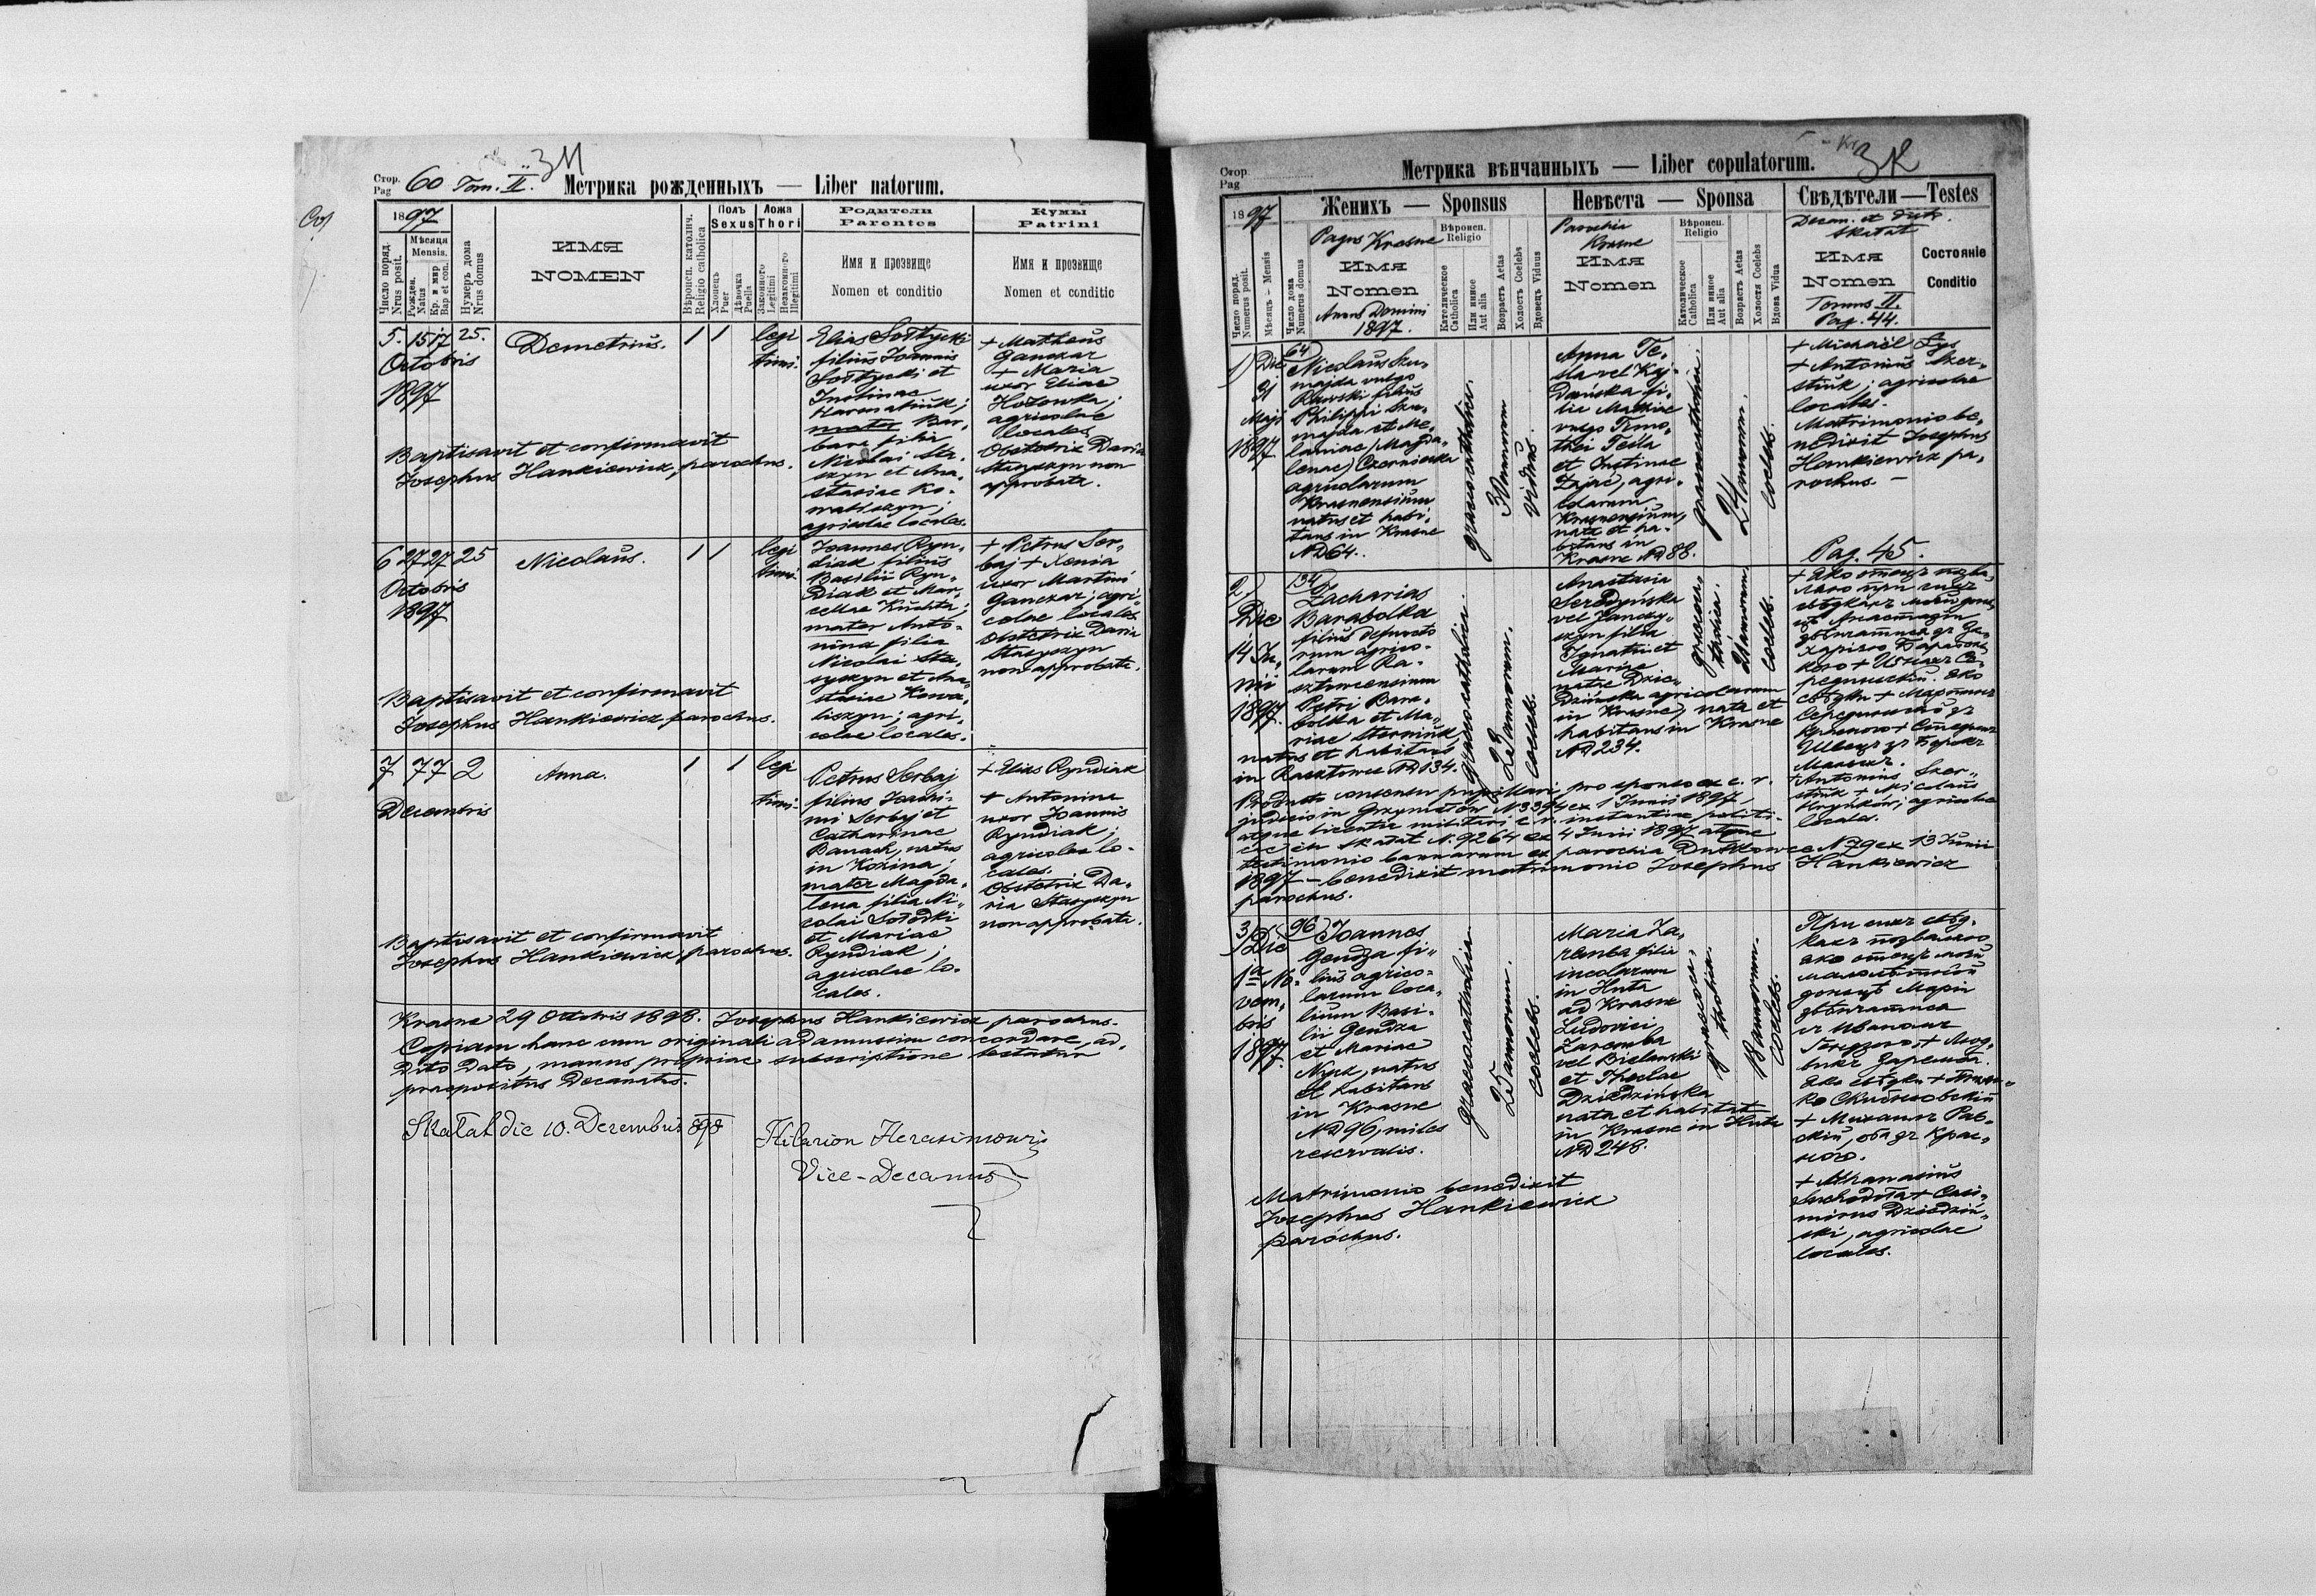 Стор. Pag 60 Tom. II. 3M
Метрика рожденныхъ — Liber natorum.
1897
Число поряд. Nrus posit.
Мѣсяця Mensis.
Рожден. Natus
Кр. и мир Bap et con.
Нумеръ дома Nrus domus
ИМЯ
NOMEN
Вѣроисп. католич. Religio catholica
Полъ Sexus
Хлопецъ Puer
Дѣвочка Puella
Ложа Thori
Законного Legitimi
Незаконного Illegitimi
Родители
Parentes
Имя и прозвище
Nomen et conditio
Кумы
Patrini
Имя и прозвище
Nomen et conditic
5. 15 17 25. Demetrius. 1 1 legi
timi.
Octobris
1897
Elias Sołtycki
filius Joannis
Sołtycki et
Justinae
Harmatiuk;
mater Bar-
bara filia
Nicolai Sta-
szyn et Ana-
stasiae Ko-
waliszyn;
agricolae locales.
+ Matheus
Ganczar
+ Maria
uxor Eliae
Hołowka;
agricolae
locales
Obstetrix Daria
Staszyszyn non
approbata.
Baptisavit et confirmavit
Josephus Hankiewicz, parochus.
6 27 27 25 Nicolaus. 1 1 legi
timi.
Octobris
1897
Joannes Ryn-
diak filius
Basilii Ryn-
diak et Mar-
cellae Kuchta;
mater Anto-
nina filia
Nicolai Sta-
syszyn et Ana-
stasiae Kowa-
liszyn; agri-
colae locales.
+ Petrus Ser-
baj + Xenia
uxor Martini
Ganczar; agri-
colae locales
Obstetrix Daria
Stasyszyn
non approbata.
Baptisavit et confirmavit
Josephus Hankiewicz parochus.
7 7 7 2 Anna. 1 1 legi
timi.
Decembris
Petrus Serbaj
filius Joachi-
mi Serbaj et
Catharinae
Banach, natus
in Kozina;
mater Magda-
lena filia Ni-
colai Sołodki
et Mariae
Ryndiak;
agricolae lo-
cales.
+ Elias Ryndiak
+ Antonina
uxor Joannis
Ryndiak;
agricolae lo-
cales.
Obstetrix Da-
ria Stasyszyn
non approbata.
Baptisavit et confirmavit
Josephus Hankiewicz, parochus.
Krasne 29 Octobris 1898. Josephus Hankiewicz parochus.
Copiam hanc cum originali adamussim concordare, ad-
dito dato, manus propriae subscriptione testatur
praepositus Decanatus.
Skałat die 10. Decembris 898
Hilarion Herasimowicz
Vice-Decanus
Стор Pag
3K
Метрика вѣнчанныхъ — Liber copulatorum.
1897
Число поряд. Numerus posit.
Мѣсяць - Mensis
Число дома Numerus domus
Женихъ — Sponsus
Pagus Krasne
Имя
Nomen
Anno Domini
1897.
Вѣроисп. Religio
Католическое Catholica
Или иное Aut alia
Возрастъ Aetas
Холостъ Coelebs
Вдовецъ Viduus
Невѣста — Sponsa
Parochia
Krasne
Имя
Nomen
Вѣроисп. Religio
Католическое Catholica
Или иное Aut alia
Возрастъ Aetas
Холостя Coelebs
Вдова Vidua
Свѣдѣтели — Testes
Decan. et distr.
Skałat
Имя
Nomen
Tomus II.
Pag. 44.
Состояніе
Conditio
1) Die
31
Maji
1897
64
Nicolaus Szu-
majda vulgo
Rawski filius
Philippi Szu-
majda et Me-
laniae (Magda-
lenae) Czerniecka
agricolarum
Krasnensium
natus et habi-
tans in Krasne
ND 64.
graeco catholica.
30 annorum
viduus.
Anna Te-
sla vel Kaj-
dańska fi-
lia Mathiae
vulgo Timo-
thei Tesla
et Justinae
Zajac, agri-
colarum
Krasnensium,
nata et ha-
bitans in
Krasne ND 88.
graecocatholica.
24 annorum.
coelebs.
+ Michaël Lys
+ Antonius Szer-
stiuk; agricolae
locales.
Matrimonio be-
nedixit Josephus
Hankiewicz pa-
rochus. —
Pag. 45.
2)
Die
14 Ju-
nii
1897.
134
Zacharias
Barabolka
filius defuncto
rum agrico-
larum Ra-
sztowcensium
Petri Bara-
bolka et Ma-
riae Sterniuk
natus et habitans
in Rasztowce ND 134.
graeco catholica.
23 annorum.
coelebs.
Anastasia
Seredyńska
vel Janczy-
szyn filia
Ignatii et
Mariae
natae Dzie-
dzińska agricolarum
in Krasne, nata et
habitans in Krasne
ND 234.
graecoca-
tholica.
21 annorum.
coelebs.
+ Яко отецъ позва-
ляю при сихъ
свѣдкахъ моей донь-
цѣ Анастазіи
вѣнчатися зъ За-
харіею Барабол-
кою + Игнахъ Се-
рединьскій. Яко
свѣдки + Мартинъ
Серединьскій зъ
Красного + Стефанъ
Швецъ зъ
+ Antonius Szer-
stiuk + Nicolaus
Hryńków; agricolae
locales.
Producto consensu pupillari pro sponso ex c. r.
judicio in Grzymałów N 3394 ex 1 Junii 1897,
atque licentia militari c. r. instantiae politi-
cae in Skałat N. 9264 ex 4 Junii 1897 atque
testimonio bannorum ex parochia Dubkowce N 79 ex 13 Junii
1897 — benedixit matrimonio Josephus Hankiewicz
parochus.
3) Die
1a No-
vem-
bris
1897.
96
Joannes
Gendza fi-
lius agrico-
larum loca-
lium Basi-
lii Gendza
et Mariae
Nyck, natus
et habitans
in Krasne
ND 96, miles
reservalis.
graecocatholica
25 annorum.
coelebs.
Maria Za-
remba filia
incolarum
in Huta
ad Krasne
Ludovici
Zaremba
vel Bielawski
et Theclae
Dziedzińska
nata et habitat
in Krasne in Huta
ND 248.
graecoca-
tholica.
annorum.
coelebs.
При сихъ свѣд-
кахъ позваляю
яко отецъ моей
малолѣтной
доньцѣ Маріи
вѣнчатися
съ Иваномъ
Гендзою + Люд-
викъ Заремба.
Яко свѣдки
+ Михаилъ Рав-
скій, оба зъ Крас-
ного.
+ Athanasius
Suchodoła + Casi-
mirus Dziedziń-
ski, agricolae
locales.
Matrimonio benedixit
Josephus Hankiewicz
parochus.